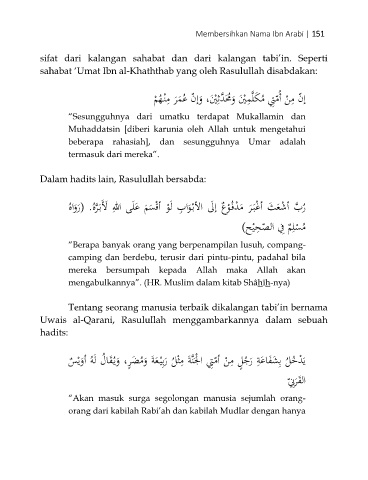 Membersihkan Nama Ibn Arabi | 151
sifat dari kalangan sahabat dan dari kalangan tabi’in. Seperti
sahabat ‘Umat Ibn al-Khaththab yang oleh Rasulullah disabdakan:
إِنّ مِنْ أُمَّتِيْ مُكَلَّمِيْنَ وَمُحَدَّثِيْنَ، وَإِنّ عُمَرَ مِنْهُمْ
“Sesungguhnya dari umatku terdapat Mukallamin dan
Muhaddatsin [diberi karunia oleh Allah untuk mengetahui
beberapa rahasiah], dan sesungguhnya Umar adalah
termasuk dari mereka”.
Dalam hadits lain, Rasulullah bersabda:
رُبَّ أَشْعَثَ أَغْبَرَ مَدْفُوْعٌ إِلَى الأبْوَابِ لَوْ أَقْسَمَ عَلَى اللهِ لَأَبَرَّهُ. (رَوَاهُ
مُسْلِمٌ فِي الصّحِيْحِ)
“Berapa banyak orang yang berpenampilan lusuh, compang-
camping dan berdebu, terusir dari pintu-pintu, padahal bila
mereka bersumpah kepada Allah maka Allah akan
mengabulkannya”. (HR. Muslim dalam kitab Shâhîh-nya)
Tentang seorang manusia terbaik dikalangan tabi’in bernama
Uwais al-Qarani, Rasulullah menggambarkannya dalam sebuah
hadits:
يَدْخُلُ بِشَفَاعَةِ رَجُلٍ مِنْ أمّتِي الْجَنَّةَ مِثْلُ رَبِيْعَةَ وَمُضَرَ، وَيُقَالُ لَهُ أوَيْسٌ
القَرَنِيّ
“Akan masuk surga segolongan manusia sejumlah orang-
orang dari kabilah Rabi’ah dan kabilah Mudlar dengan hanya